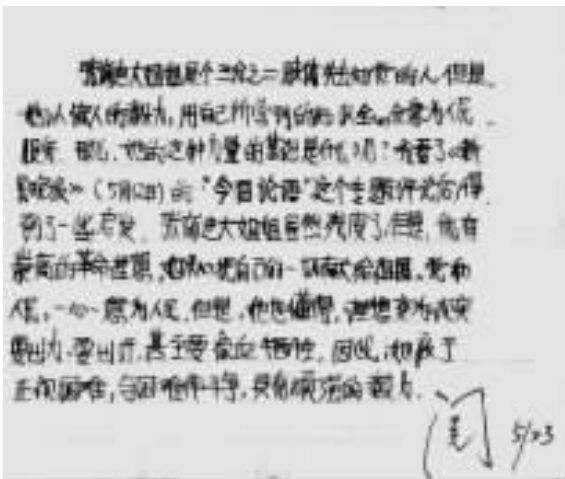 张海迪大姐姐是个三分之二肢体失去知觉的人，但是
她以惊人的毅力，用自己所学到的东西全心全意为人民
服务。那么，她的这种力量的基础是什么呢？我看了《新
民晚报》（5月22日）的“今日论语”这个专题评论后，得
到了一些启发。张海迪大姐姐虽然残废了，但是，她有
崇高的革命理想，她决心把自己的一切献给祖国、党和
人民，一心一意为人民。但是，她也懂得，理想变为现实
要出力、要出汗，甚至要做出牺牲。因此，她敢于
正视困难，与困难作斗争，具有顽强的毅力。
阅 5/23